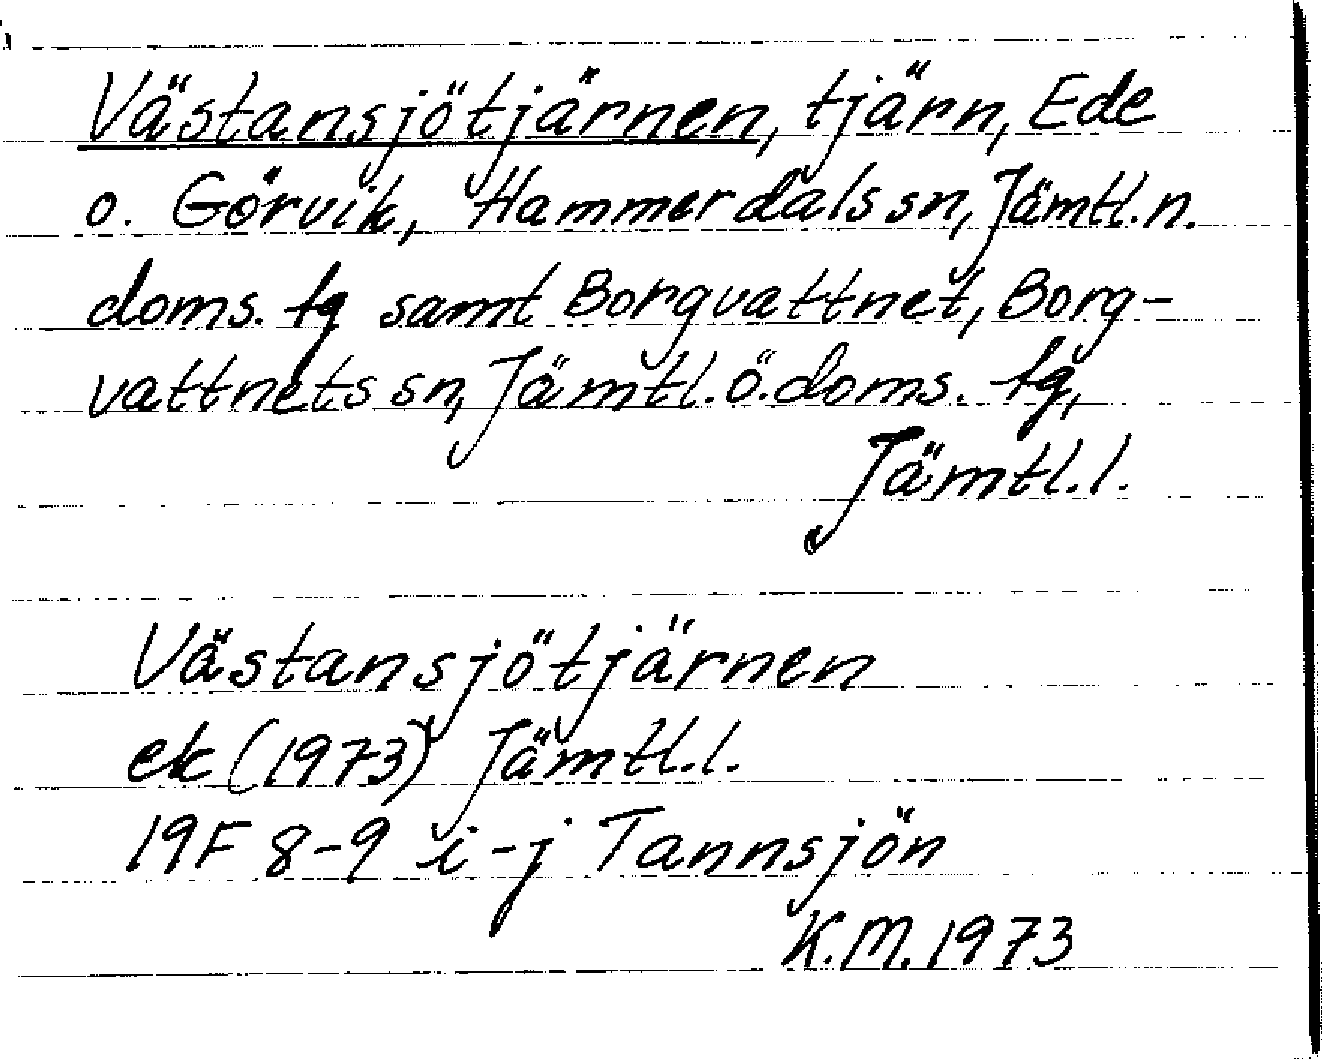 Västansjötjärnen, tjärn, Ede
o. Görvik, Hammerdals sn, Jämtl. n.
doms. tg samt Borgvattnet, Borg-
vattnets sn, Jämtl. ö. doms. tg,
Jämtl. l.
Västansjötjärnen
ek (1973) Jämtl. l.
19F 8-9 i-j Tannsjön
K.M. 1973